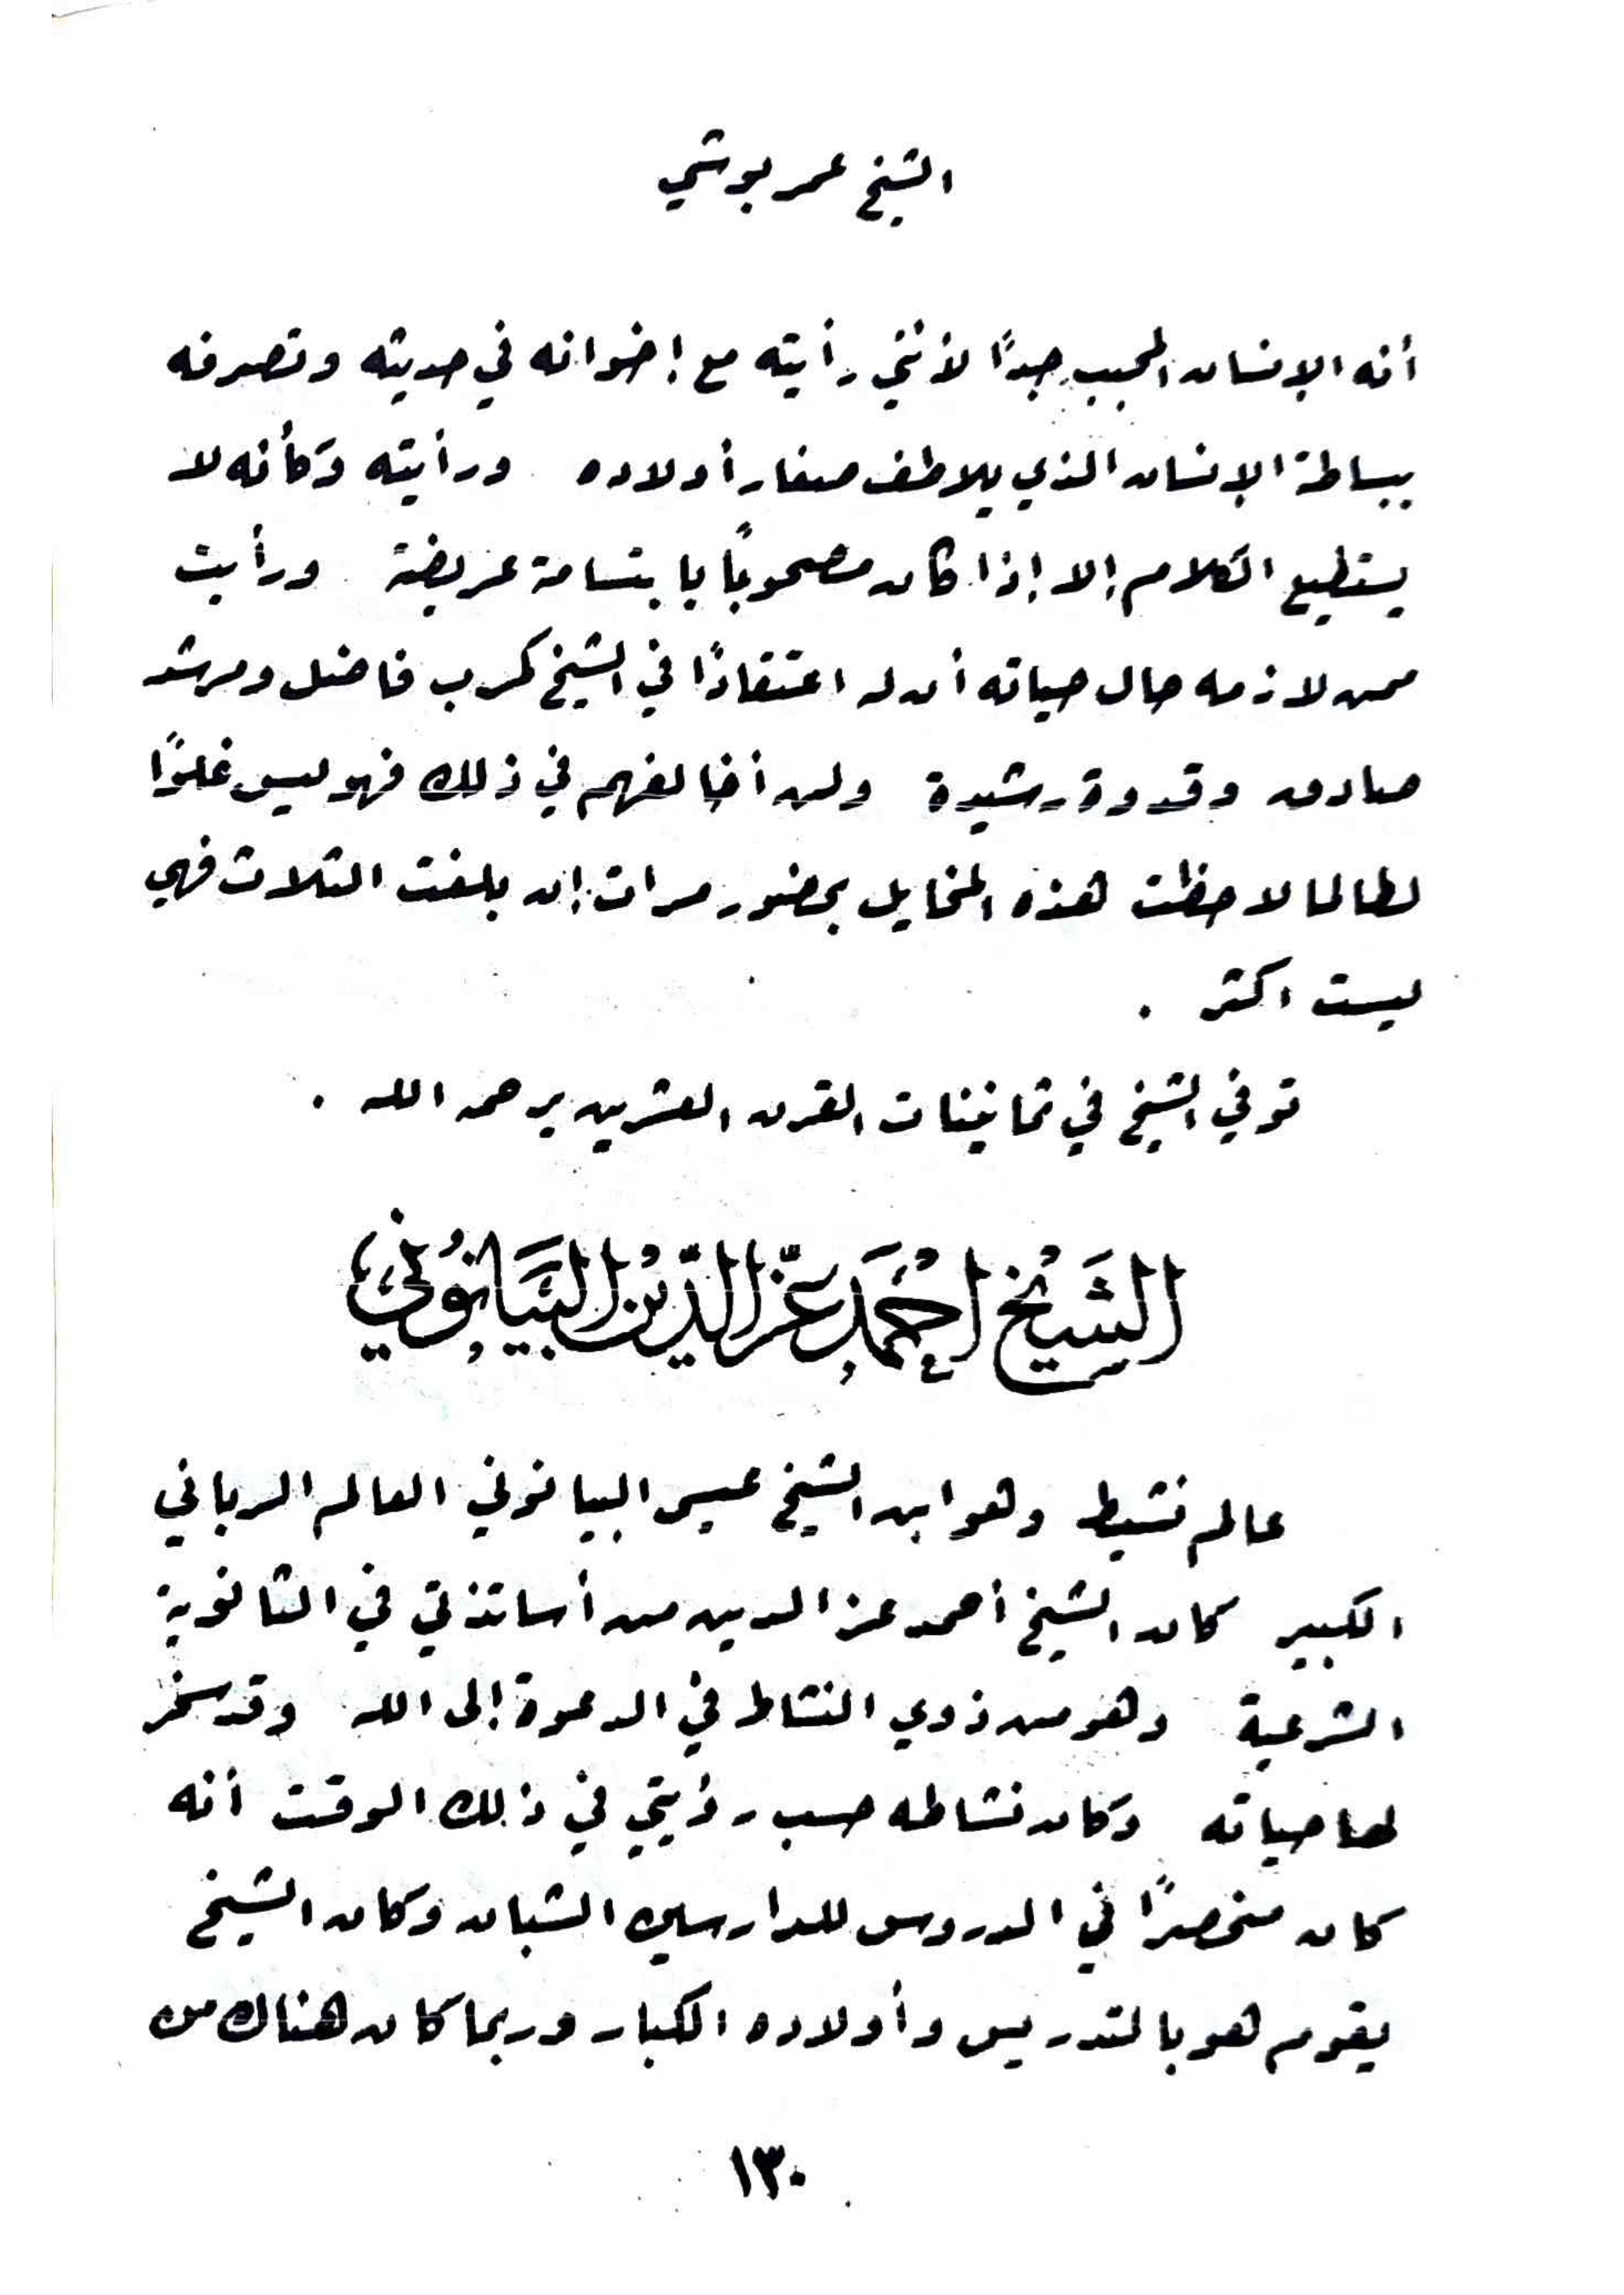 الشيخ عمر بوشي
أنه الإنسان المحبب جدًا لأنني رأيته مع إخوانه في حديثه وتصرفه
ببساطة الإنسان الذي يلاطف صغار أولاده ورأيته وكأنه لا
يستطيع الكلام إلا إذا كان مصحوبًا بابتسامة عريضة ورأيت
ممن لازمه حال حياته أن له اعتقادًا في الشيخ كمرب فاضل ومرشد
صادق وقدوة رشيدة ولن أخالفهم في ذلك فهو ليس غلوًا
لطالما لاحظت هذه المخايل بحضور مرات إن بلغت الثلاث فهي
ليست اكثر .
توفي الشيخ في ثمانينات القرن العشرين يرحمه الله .
الشَيْخ احْمَد عِزّ الدِّيْن البَيَانُوْنِي
عالم نشيط وهو ابن الشيخ عيسى البيانوني العالم الرباني
الكبير كان الشيخ أحمد عز الدين من أساتذتي في الثانوية
الشرعية وهو من ذوي النشاط في الدعوة إلى الله وقد سخر
لها حياته وكان نشاطه حسب رؤيتي في ذلك الوقت أنه
كان منحصرًا في الدروس للدارسين الشبان وكان الشيخ
يقوم هو بالتدريس وأولاده الكبار وربما كان هناك من
١٣٠